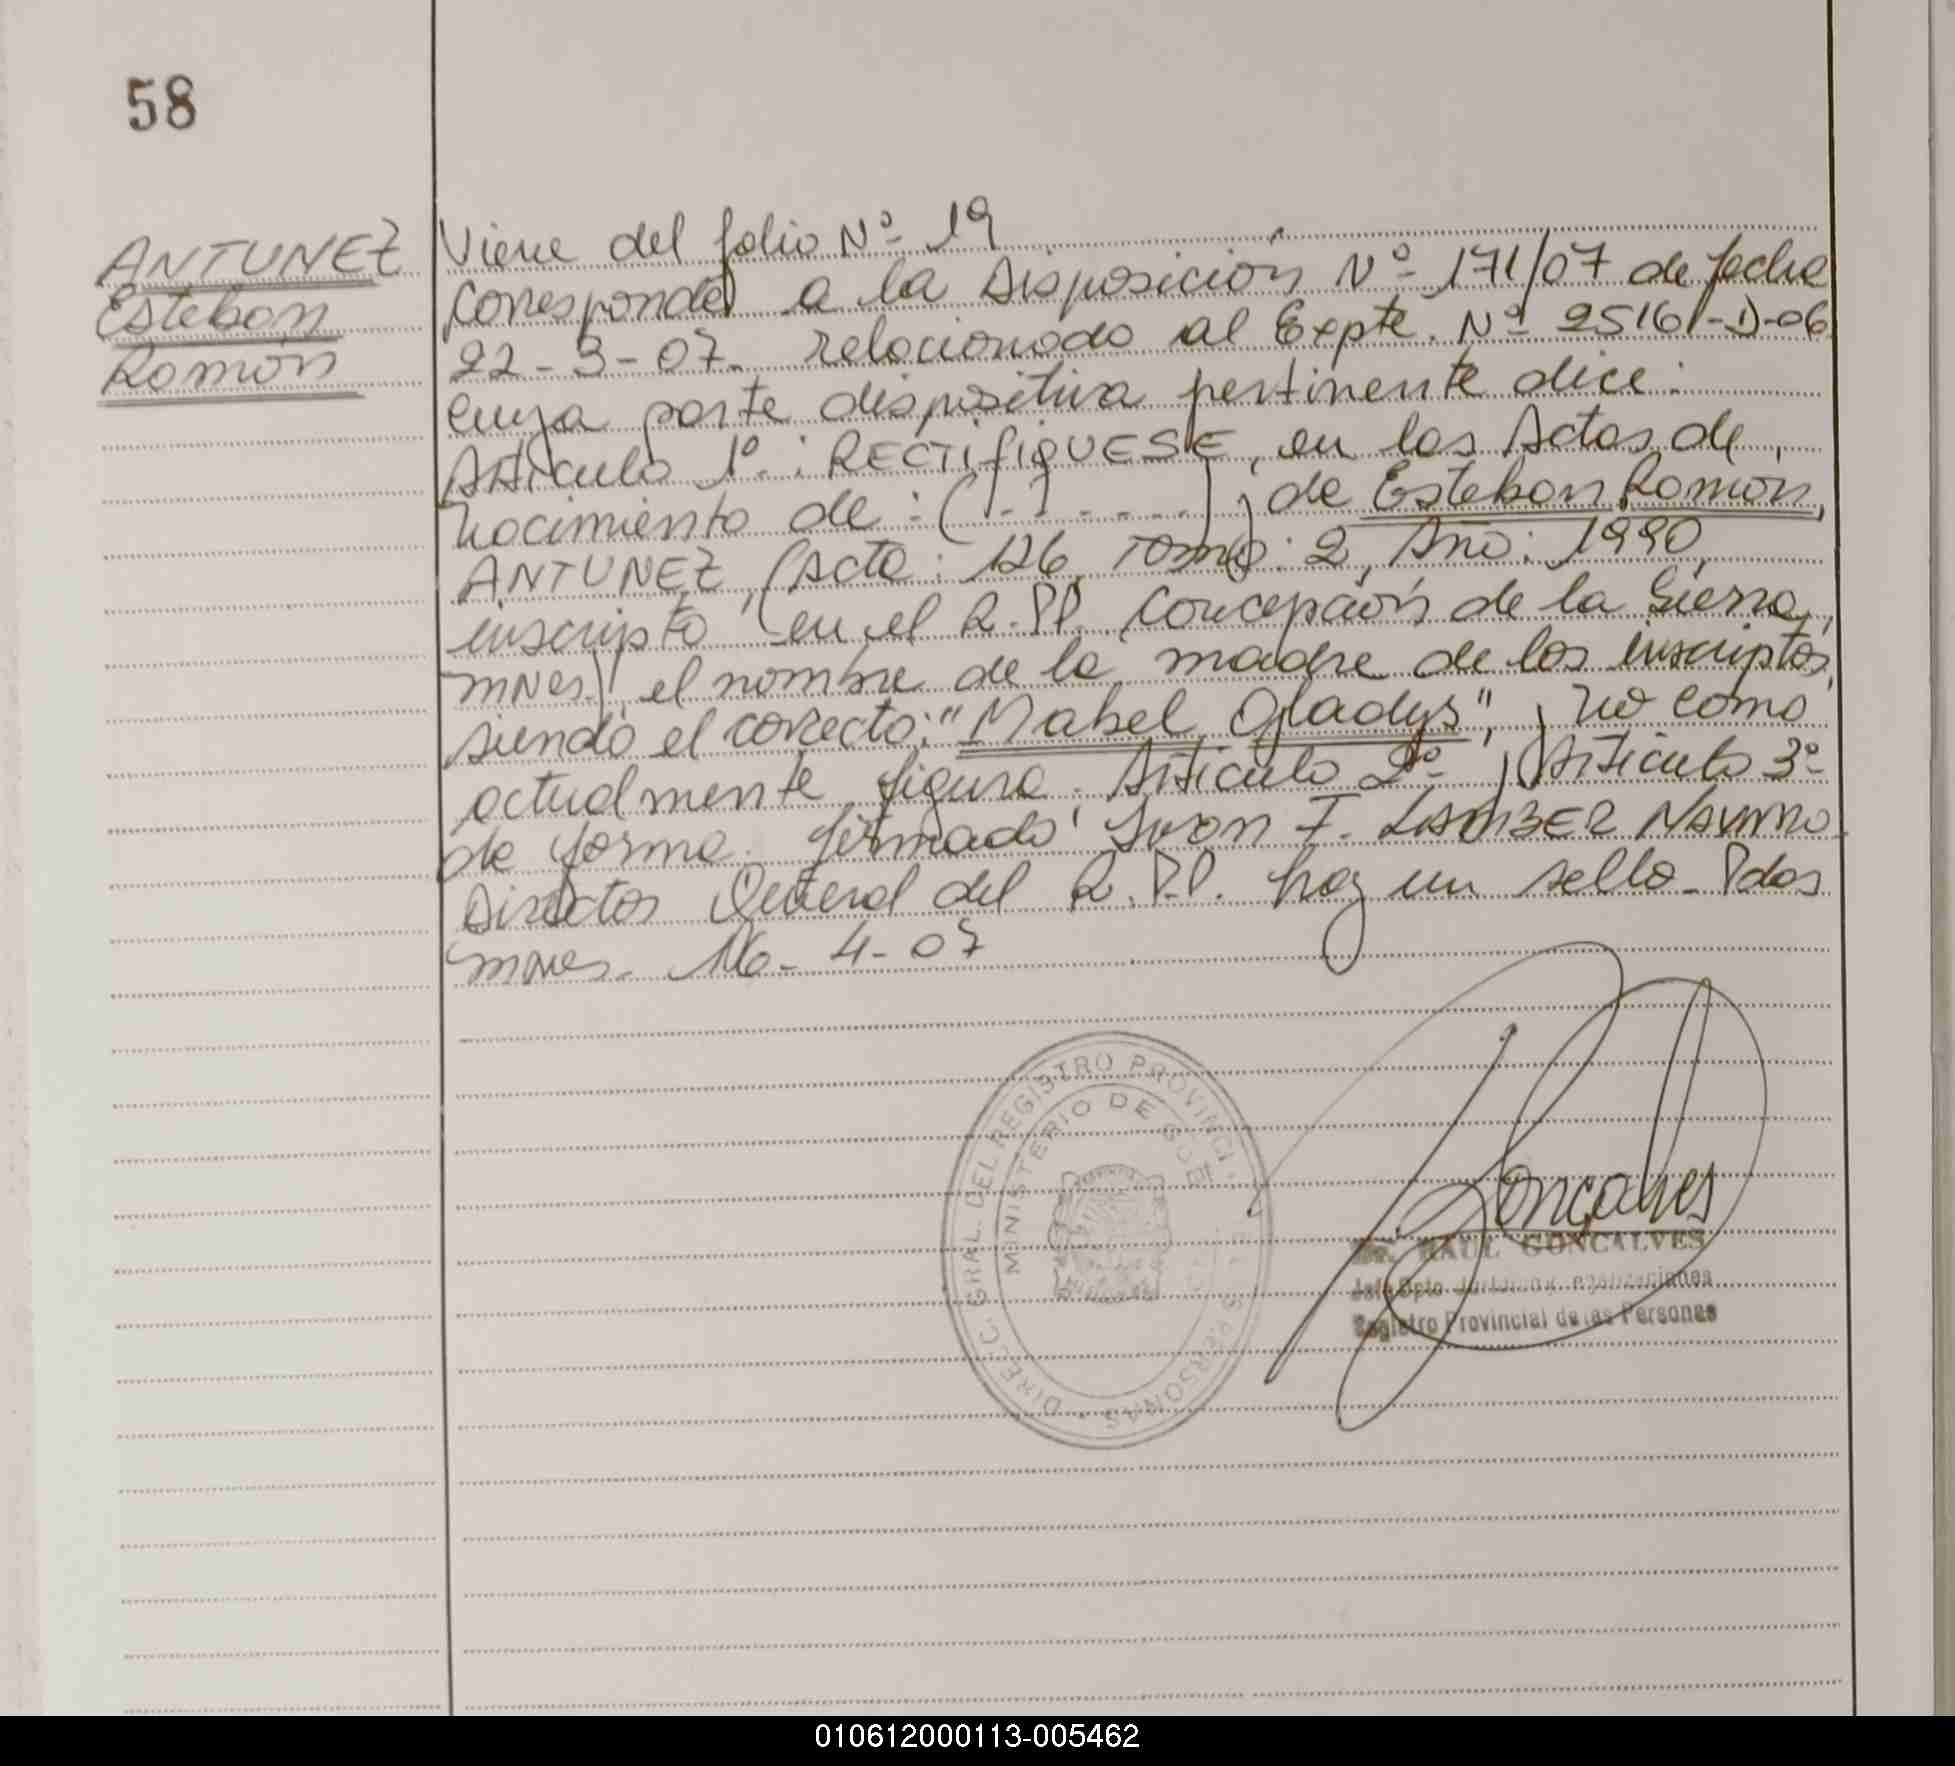 58
ANTUNEZ
Esteban
Ramón
Viene del folio Nº 19
Corresponde a la Disposición Nº 171/07 de fecha
22-3-07. relacionado al Expte. Nº 2516-D-06
cuya parte dispositiva pertinente dice:
Artículo 1º: RECTIFIQUESE, en las Actas de
nacimiento de: (- - - - - -); de Esteban Ramón
ANTUNEZ, (Acta: 126, Tomo: 2, Año: 1990,
inscripta en el R.P.P. Concepción de la Sierra,
Mnes), el nombre de la madre de los inscriptos,
siendo el correcto: "Mabel Gladys", y no como
actualmente figura. Artículo 2º y Artículo 3º
de forma. firmado: Ivon F. Navarro
Director General del R.P.P. hay un sello - Pdas
Mnes. 16-4-07
DIRECC. GRAL. DEL REGISTRO PROVINCI PERSONAS
MINISTERIO DE GOB
Goncalves
Dr. RAUL GONCALVES
Jefe Dpto
Registro Provincial de las Personas
010612000113-005462